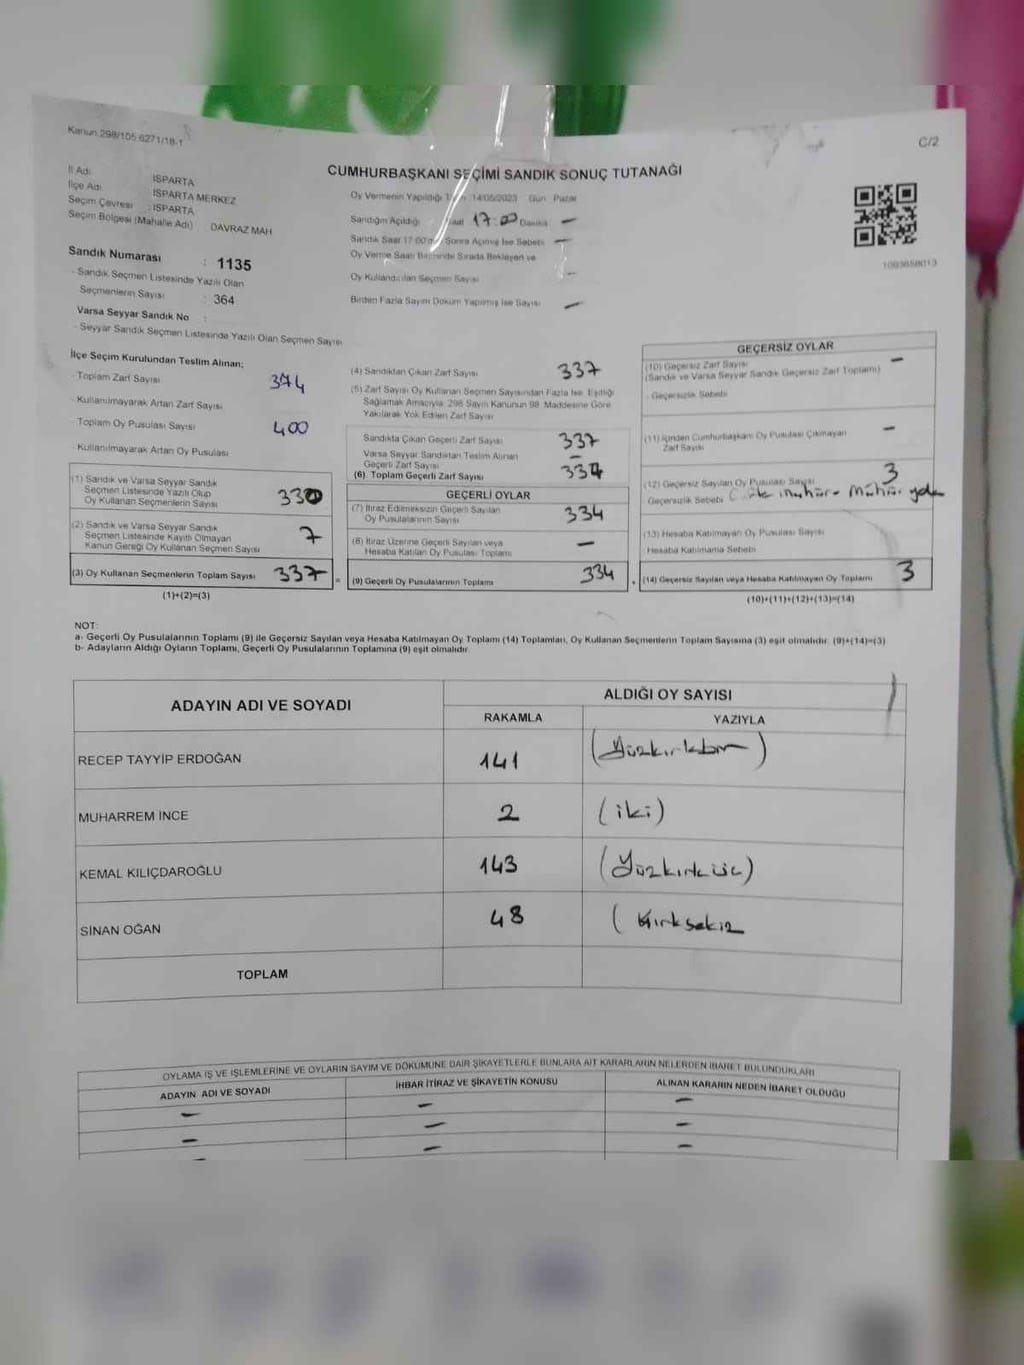 Kanun 298/105 6271/18-1
C/2
CUMHURBAŞKANI SEÇİMİ SANDIK SONUÇ TUTANAĞI
İl Adı : ISPARTA
İlçe Adı : ISPARTA MERKEZ
Seçim Çevresi : ISPARTA
Seçim Bölgesi (Mahalle Adı) DAVRAZ MAH
Sandık Numarası : 1135
- Sandık Seçmen Listesinde Yazılı Olan
Seçmenlerin Sayısı : 364
Varsa Seyyar Sandık No :
- Seyyar Sandık Seçmen Listesinde Yazılı Olan Seçmen Sayısı
Oy Vermenin Yapıldığı 14/05/2023 Gün Pazar
Sandığın Açıldığı Saat 17:00 Dakika —
Sandık Saat 17:00'den Sonra Açılmış İse Sebebi —
Oy Verme Saati Bitiminde Sırada Bekleyen ve
Oy Kullandırılan Seçmen Sayısı —
Birden Fazla Sayım Döküm Yapılmış İse Sayısı —
1093658013
İlçe Seçim Kurulundan Teslim Alınan;
- Toplam Zarf Sayısı 374
- Kullanılmayarak Artan Zarf Sayısı
- Toplam Oy Pusulası Sayısı 400
Kullanılmayarak Artan Oy Pusulası
(1) Sandık ve Varsa Seyyar Sandık
Seçmen Listesinde Yazılı Olup
Oy Kullanan Seçmenlerin Sayısı 330
(2) Sandık ve Varsa Seyyar Sandık
Seçmen Listesinde Kayıtlı Olmayan
Kanun Gereği Oy Kullanan Seçmen Sayısı 7
(3) Oy Kullanan Seçmenlerin Toplam Sayısı 337 =
(1)+(2)=(3)
(4) Sandıktan Çıkan Zarf Sayısı 337
(5) Zarf Sayısı Oy Kullanan Seçmen Sayısından Fazla İse, Eşitliği
Sağlamak Amacıyla 298 Sayılı Kanunun 98. Maddesine Göre
Yakılarak Yok Edilen Zarf Sayısı
Sandıkta Çıkan Geçerli Zarf Sayısı 337
Varsa Seyyar Sandıktan Teslim Alınan
Geçerli Zarf Sayısı —
(6) Toplam Geçerli Zarf Sayısı 334
GEÇERLİ OYLAR
(7) İtiraz Edilmeksizin Geçerli Sayılan
Oy Pusulalarının Sayısı 334
(8) İtiraz Üzerine Geçerli Sayılan veya
Hesaba Katılan Oy Pusulası Toplamı —
(9) Geçerli Oy Pusulalarının Toplamı 334
GEÇERSİZ OYLAR
(10) Geçersiz Zarf Sayısı —
(Sandık ve Varsa Seyyar Sandık Geçersiz Zarf Toplamı)
- Geçersizlik Sebebi
(11) İçinden Cumhurbaşkanı Oy Pusulası Çıkmayan —
Zarf Sayısı
(12) Geçersiz Sayılan Oy Pusulası Sayısı 3
Geçersizlik Sebebi mühür - Mühür yok
(13) Hesaba Katılmayan Oy Pusulası Sayısı
Hesaba Katılmama Sebebi
(14) Geçersiz Sayılan veya Hesaba Katılmayan Oy Toplamı 3
(10)+(11)+(12)+(13)=(14)
NOT:
a- Geçerli Oy Pusulalarının Toplamı (9) ile Geçersiz Sayılan veya Hesaba Katılmayan Oy Toplamı (14) Toplamları, Oy Kullanan Seçmenlerin Toplam Sayısına (3) eşit olmalıdır. (9)+(14)=(3)
b- Adayların Aldığı Oyların Toplamı, Geçerli Oy Pusulalarının Toplamına (9) eşit olmalıdır.
ADAYIN ADI VE SOYADI
ALDIĞI OY SAYISI
RAKAMLA YAZIYLA
RECEP TAYYİP ERDOĞAN 141 (Yüzkırkbir)
MUHARREM İNCE 2 (iki)
KEMAL KILIÇDAROĞLU 143 (Yüzkırküç)
SİNAN OĞAN 48 (Kırksekiz
TOPLAM
OYLAMA İŞ VE İŞLEMLERİNE VE OYLARIN SAYIM VE DÖKÜMÜNE DAİR ŞİKAYETLERLE BUNLARA AİT KARARLARIN NELERDEN İBARET BULUNDUKLARI
ADAYIN ADI VE SOYADI İHBAR İTİRAZ VE ŞİKAYETİN KONUSU ALINAN KARARIN NEDEN İBARET OLDUĞU
— — —
— — —
— — —